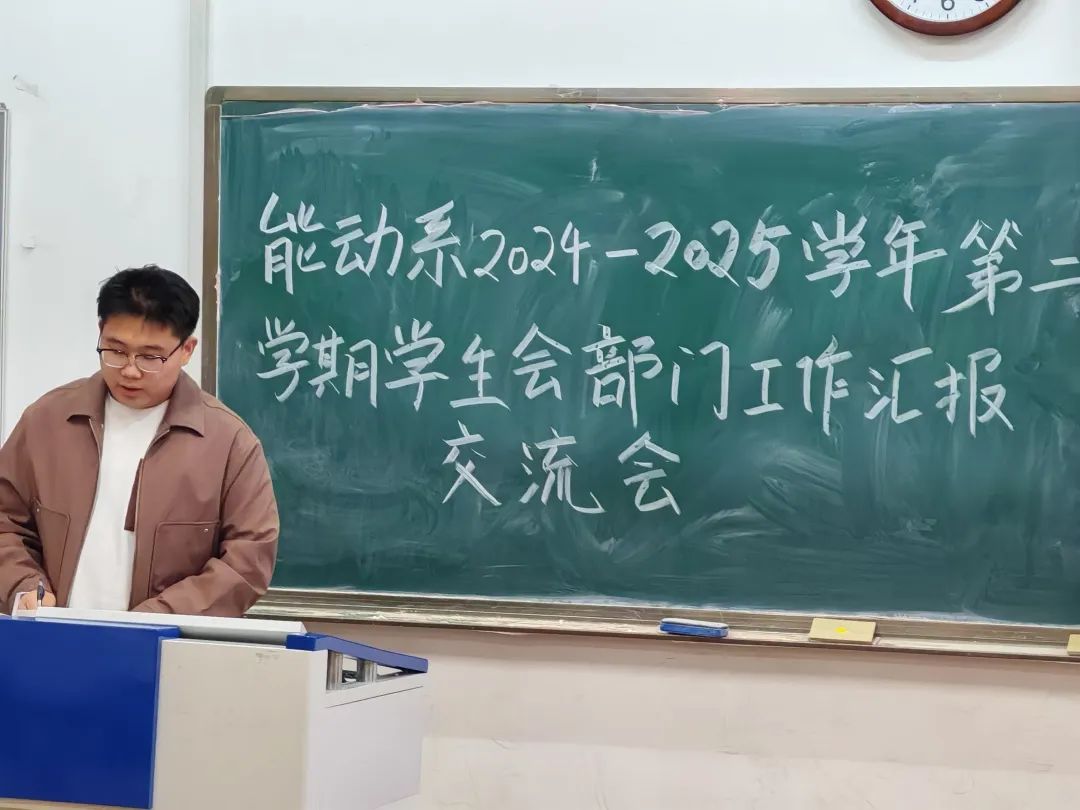 能动系2024-2025学年第二
学期学生会部门工作汇报
交流会
6